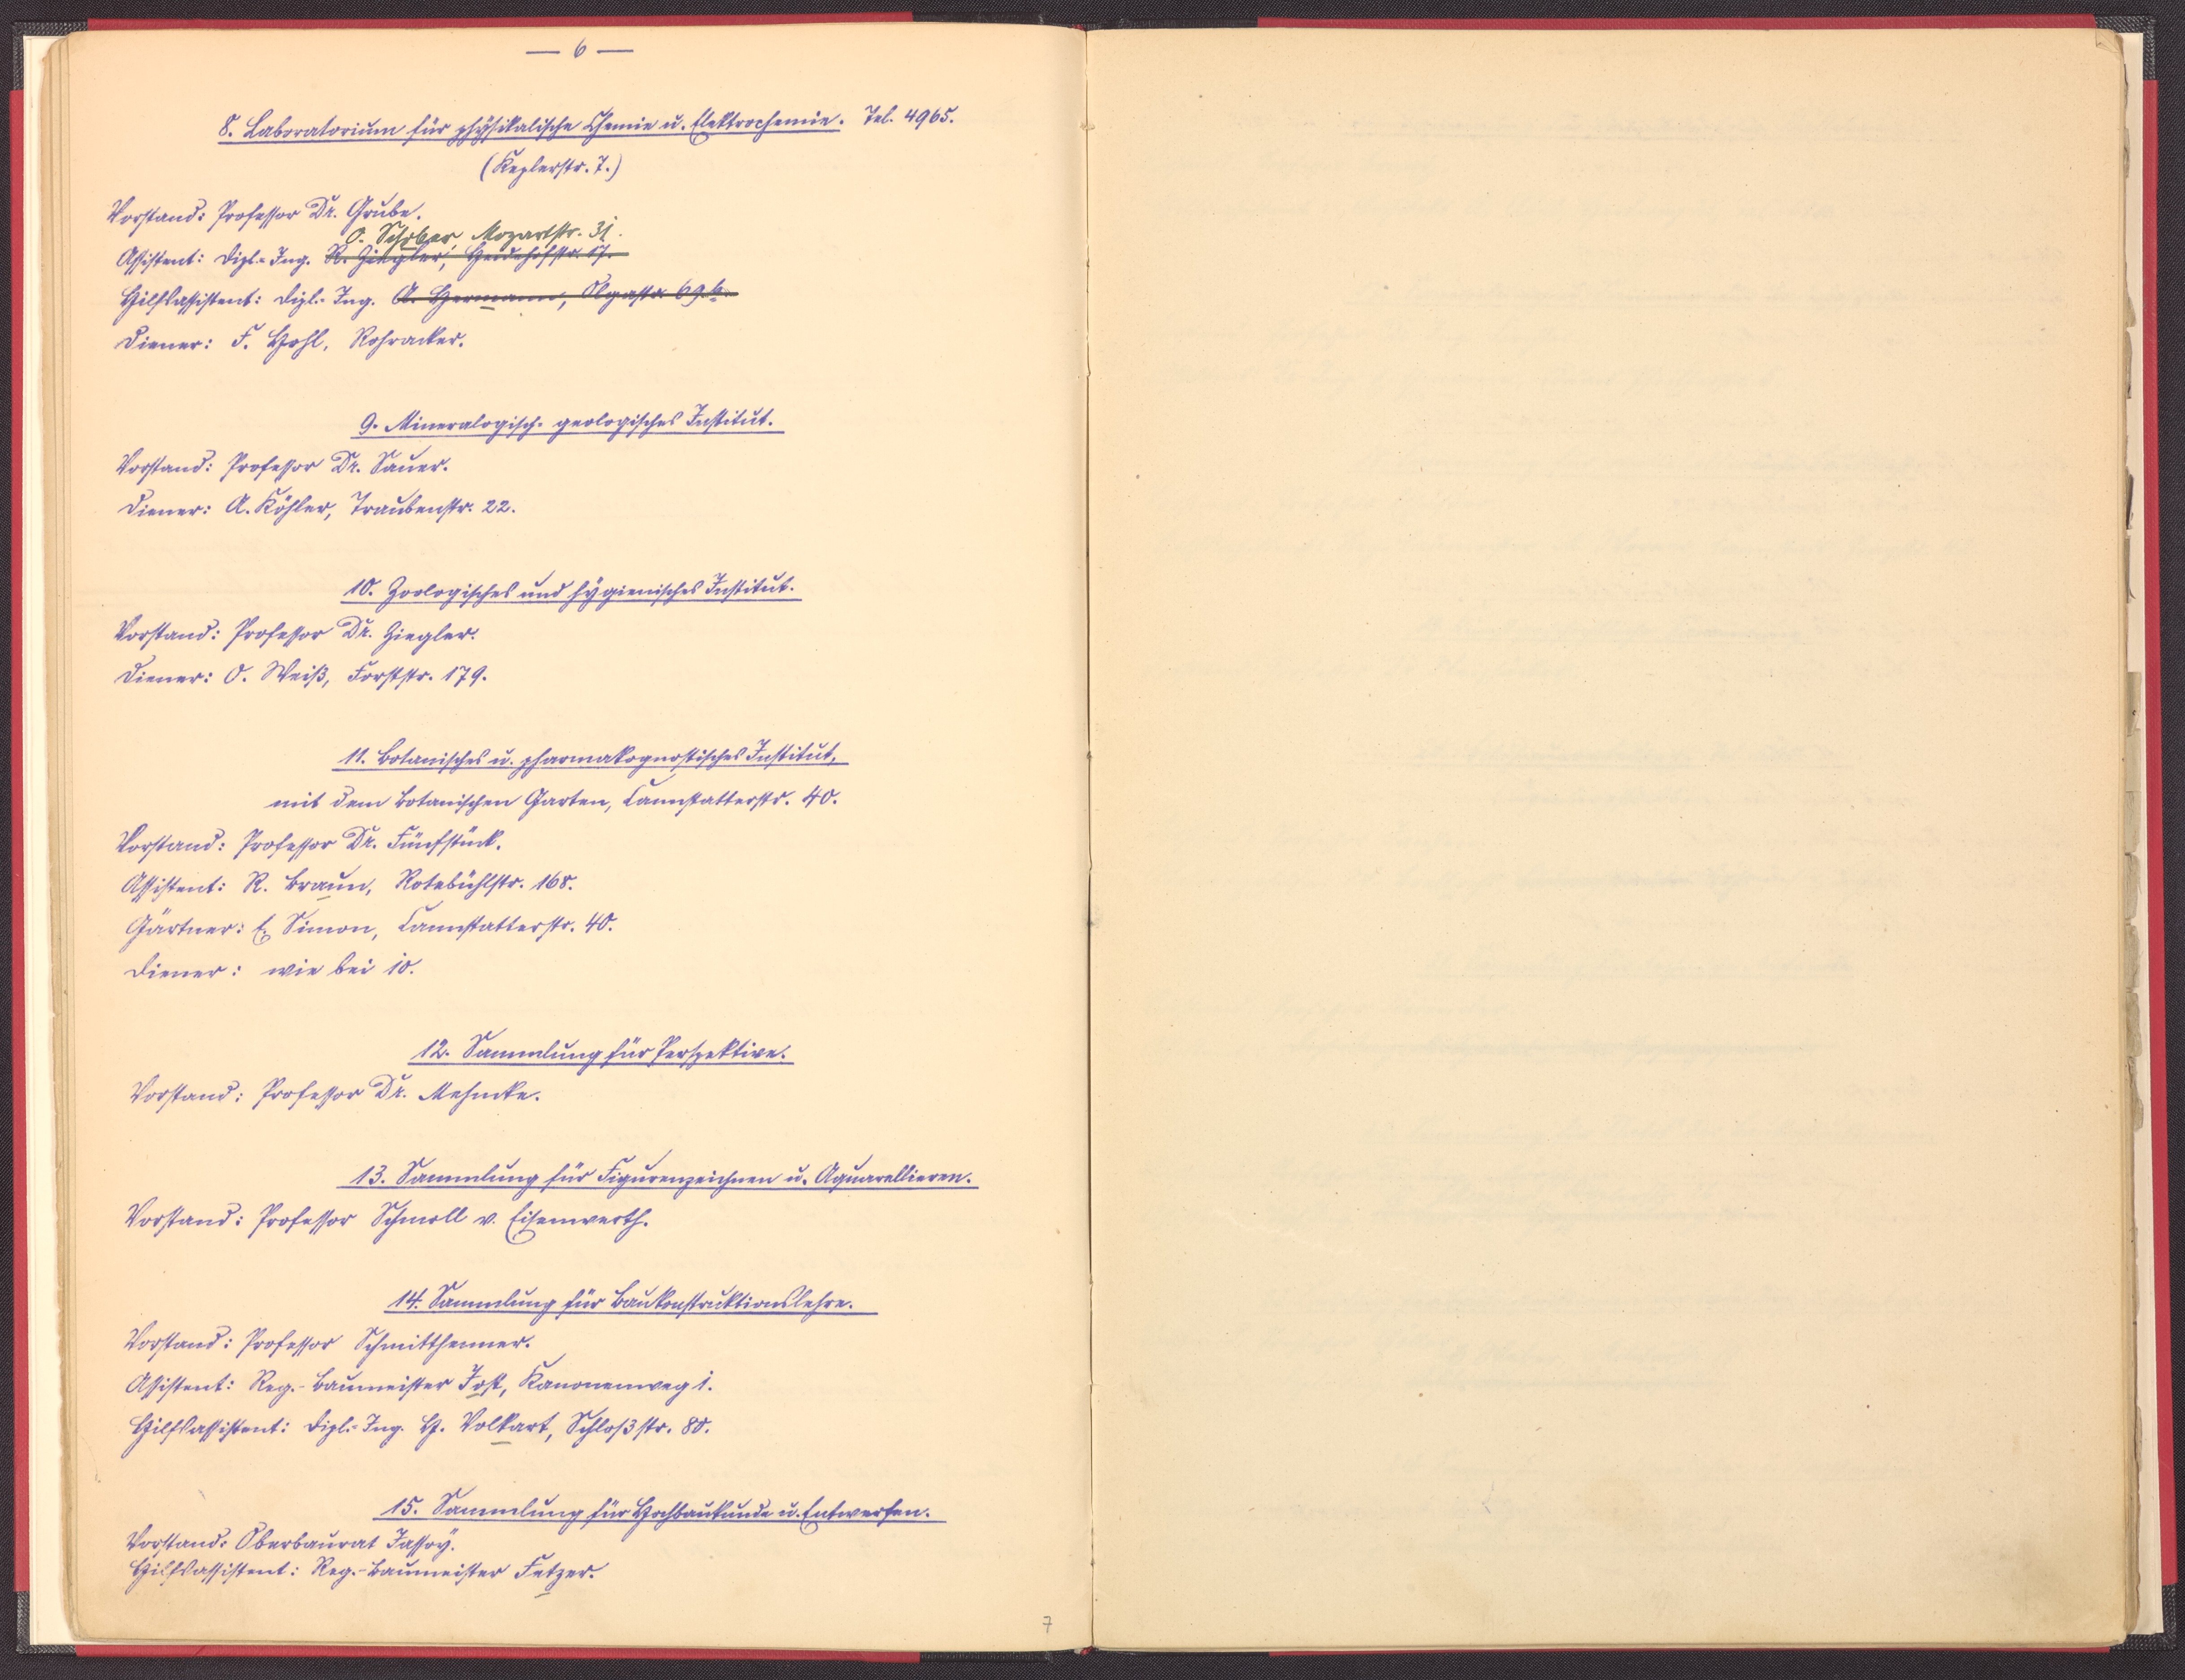 — 6 —
8. Laboratorium für physikalische Chemie u. Elektrochemie. Tel. 4965.
(Keplerstr. 7.)
Vorstand: Professor Dr. Grube.
O. Schober, Mozartstr. 31.
Assistent: Dipl.-Ing. R. Ziegler, Heidehofstr. 17.
Hilfsassistent: Dipl.-Ing. A. Hermann, Olgastr. 69b.
Diener: F. Hohl, Rohracker.
9. Mineralogisch-geologisches Institut.
Vorstand: Professor Dr. Sauer.
Diener: A. Köhler, Traubenstr. 22.
10. Zoologisches und hygienisches Institut.
Vorstand: Professor Dr. Ziegler.
Diener: O. Weiß, Forststr. 179.
11. Botanisches u. pharmakognostisches Institut,
mit dem botanischen Garten, Cannstatterstr. 40.
Vorstand: Professor Dr. Fünfstück.
Assistent: R. Braun, Rotebühlstr. 168.
Gärtner: E. Simon, Cannstatterstr. 40.
Diener: wie bei 10.
12. Sammlung für Perspektive.
Vorstand: Professor Dr. Mehmke.
13. Sammlung für Figurenzeichnen u. Aquarellieren.
Vorstand: Professor Schmoll v. Eisenwerth.
14. Sammlung für Baukonstruktionslehre.
Vorstand: Professor Schmitthenner.
Assistent: Reg.-Baumeister Jost, Kanonenweg 1.
Hilfsassistent: Dipl.-Ing. H. Volkart, Schloßstr. 80.
15. Sammlung für Hochbaukunde u. Entwerfen.
Vorstand: Oberbaurat Jassoy.
Hilfsassistent: Reg.-Baumeister Fetzer.
7